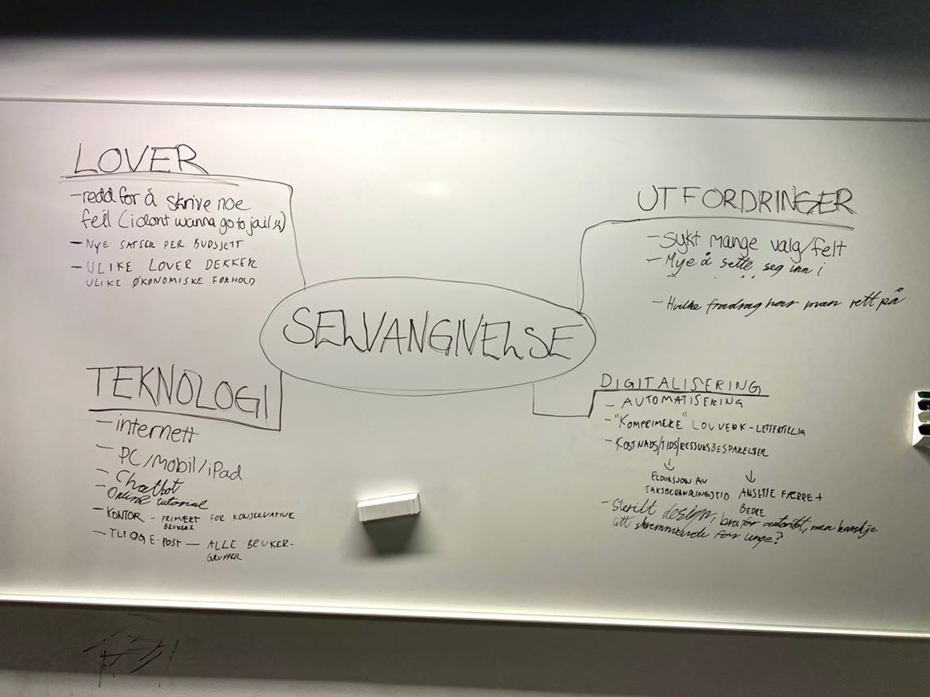 LOVER
- redd for å skrive noe
feil (i dont wanna go to jail
- NYE SATSER PER BUDSJETT
- ULIKE LOVER DEKKER
ULIKE ØKONOMISKE FORHOLD
UTFORDRINGER
- Sykt mange valg/felt
- Mye å sette seg inn i
- Hvilke fradrag har man rett på
SELVANGIVELSE
TEKNOLOGI
- internett
- PC/mobil/iPad
- Chatbot
- Online tutorial
- KONTOR - PRIMÆRT FOR KONSERVATIVE
BRUKERE
- POST - ALLE BRUKER-
GRUPPER
DIGITALISERING
- AUTOMATISERING
- "KOMPRIMERE" LOVVERK -
- KOSTNADS/TIDS/RESSURSBESPARELSER
↓ ↓
AV ANSETTE FÆRRE +
SAKSBEHANDLINGSTID BEDRE
- Sterilt design, bra for autoritet, men kanskje
litt skremmende for unge?